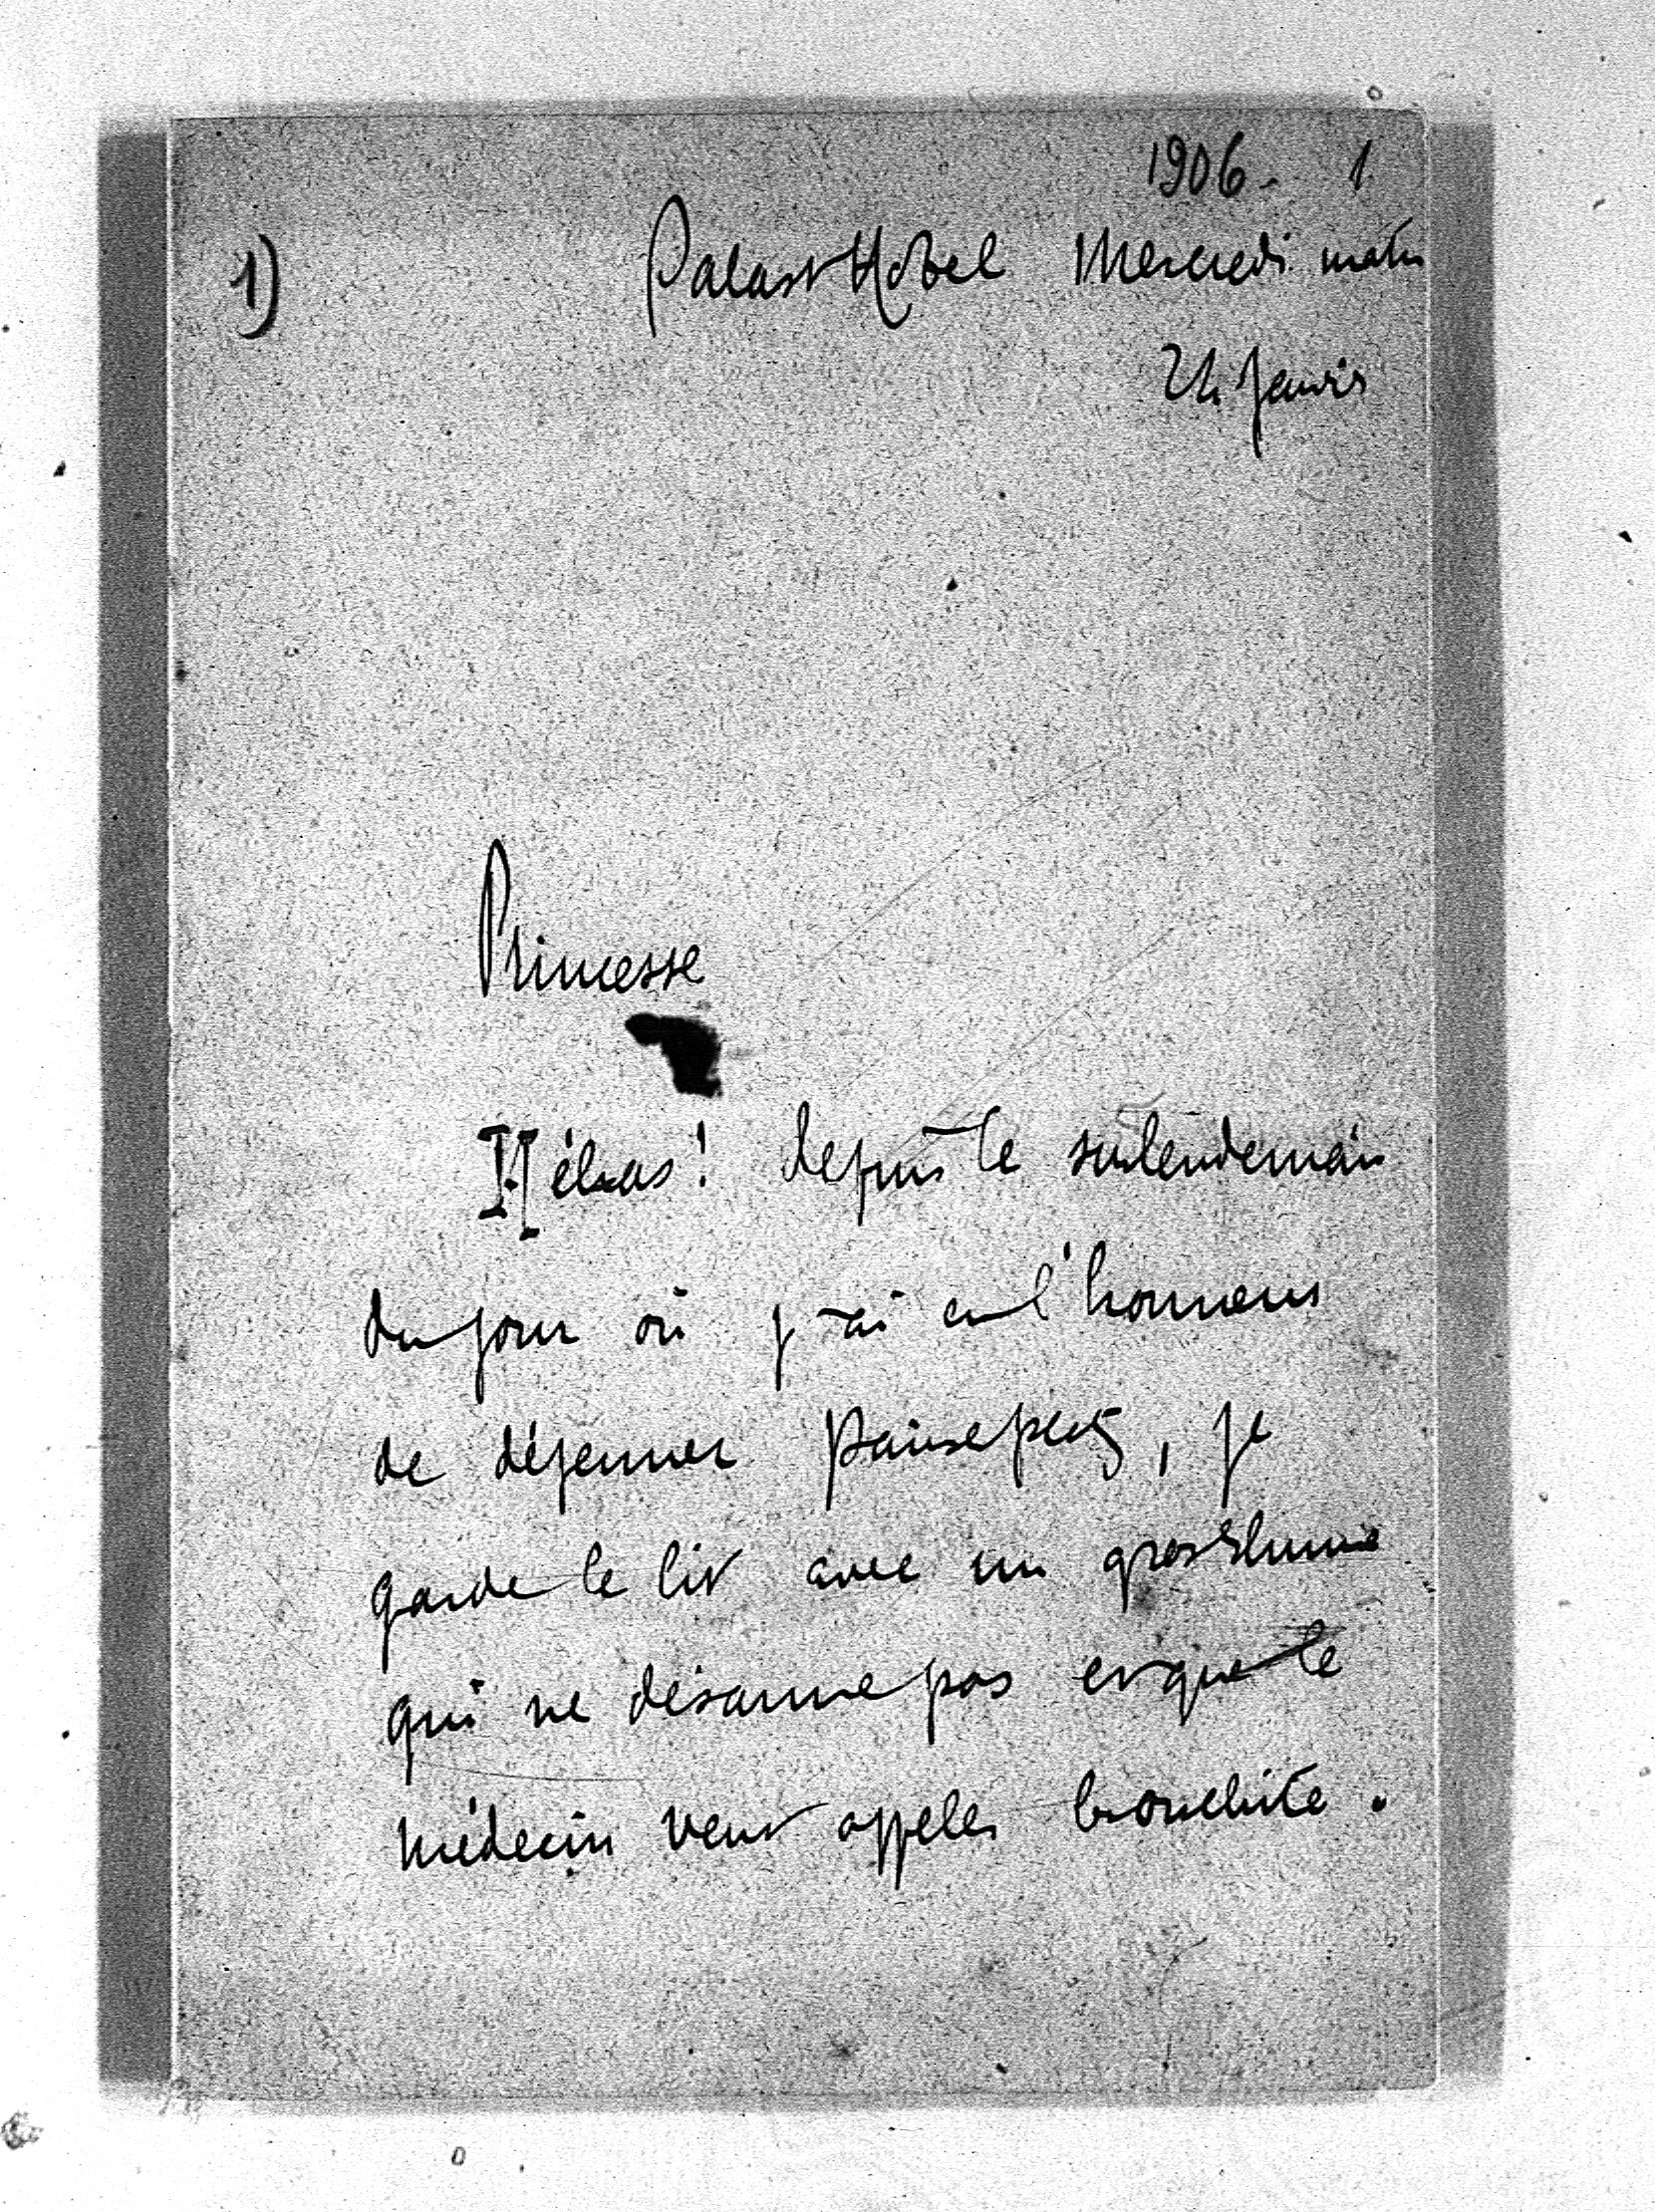 1906. 1
1) Palast Hôtel Mercredi matin
24 Janvier
Princesse
Hélas! depuis le surlendemain
du jour où j'ai eu l'honneur
de déjeuner
garde le lit avec un gros rhume
qui ne désarme pas et que le
médecin veut appeler bronchite.